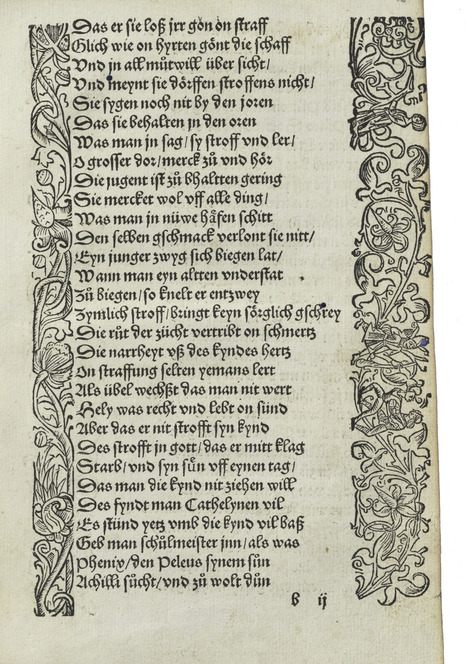 Das er sie loß jrr gön on straff
Glich wie on hyrten gönt die schaff
Vnd in all můtwill über sicht/
Vnd meynt sie dörffen stroffens nicht/
Sie sygen noch nit by den joren
Das sie behalten in den oren
Was man in sag/ sy stroff vnd ler/
O grosser dor/ merck zů vnd hör
Die jugent ist zů bhaltten gering
Sie mercket wol vff alle ding/
Was man in nüwe häfen schitt
Den selben gschmack verlont sie nitt/
Eyn junger zwyg sich biegen lat/
Wann man eyn altten vnderstat
Zů biegen/ so knelt er entzwey
Zymlich stroff/ bringt keyn sörglich gschrey
Die růt der zücht vertribt on schmertz
Die narrheyt vß des kyndes hertz
On straffung selten yemans lert
Als übel wechßt das man nit wert
Hely was recht vnd lebt on sünd
Aber das er nit strofft syn kynd
Des strofft jn gott/ das er mitt klag
Starb/ vnd syn sün vff eynen tag/
Das man die kynd nit ziehen will
Des fyndt man Cathelynen vil
Es stünd yetz vmb die kynd vil baß
Geb man schůlmeister jnn/ als was
Phenix/ den Peleus synem sün
Achilli sůcht/ vnd zů wolt dün
b ij